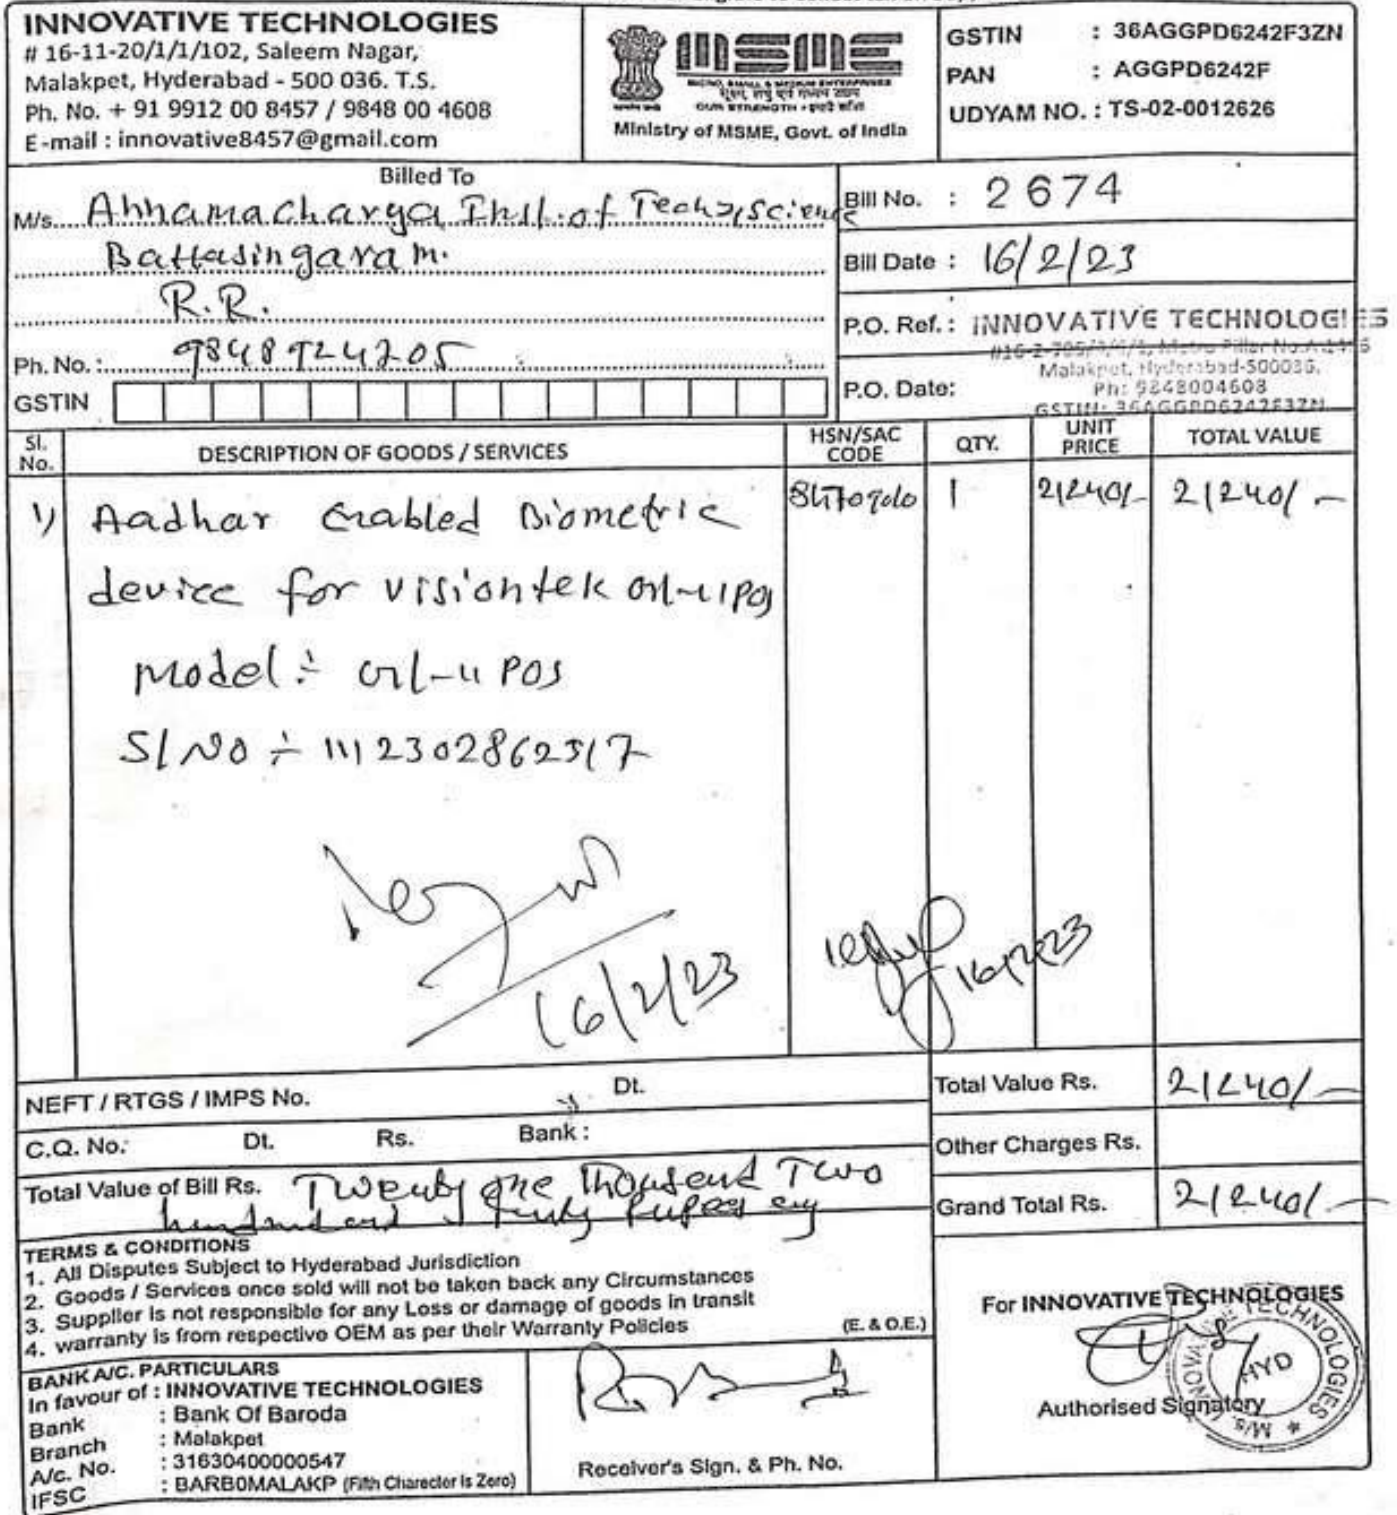 INNOVATIVE TECHNOLOGIES
# 16-11-20/1/1/102, Saleem Nagar,
Malakpet, Hyderabad - 500 036. T.S.
Ph. No. + 91 9912 00 8457 / 9848 00 4608
E-mail : innovative8457@gmail.com
msme
MICRO, SMALL & MEDIUM ENTERPRISES
सूक्ष्म, लघु एवं मध्यम उद्यम
OUR STRENGTH • हमारी शक्ति
Ministry of MSME, Govt. of India
GSTIN : 36AGGPD6242F3ZN
PAN : AGGPD6242F
UDYAM NO. : TS-02-0012626
Billed To
M/s. Ahnamacharya Inst. of Tech & Science
Battasingaram.
R.R.
Ph. No. : 9848924205
GSTIN
Bill No. : 2674
Bill Date : 16/2/23
P.O. Ref. : INNOVATIVE TECHNOLOGIES
Malakpet, Hyderabad-500036,
P.O. Date: Ph: 9848004608
GSTIN: 36AGGPD6242F3ZN
Sl. No. DESCRIPTION OF GOODS / SERVICES HSN/SAC CODE QTY. UNIT PRICE TOTAL VALUE
1) Aadhar Enabled Biometric 1 21240/- 21240/-
device for visiontek
model :-
Sl No :- 1112302862317
16/2/23
16/2/23
NEFT / RTGS / IMPS No. Dt.
Total Value Rs. 21240/-
C.Q. No.: Dt. Rs. Bank :
Other Charges Rs.
Total Value of Bill Rs. Twenty one Thousand Two
hundred and Rupees
Grand Total Rs. 21240/-
TERMS & CONDITIONS
1. All Disputes Subject to Hyderabad Jurisdiction
2. Goods / Services once sold will not be taken back any Circumstances
3. Supplier is not responsible for any Loss or damage of goods in transit
4. warranty is from respective OEM as per their Warranty Policies (E. & O.E.)
BANK A/C. PARTICULARS
In favour of : INNOVATIVE TECHNOLOGIES
Bank : Bank Of Baroda
Branch : Malakpet
A/c. No. : 31630400000547
IFSC : BARB0MALAKP (Fifth Charecter is Zero)
Receiver's Sign. & Ph. No.
For INNOVATIVE TECHNOLOGIES
M/s. INNOVATIVE TECHNOLOGIES
HYD
Authorised Signatory